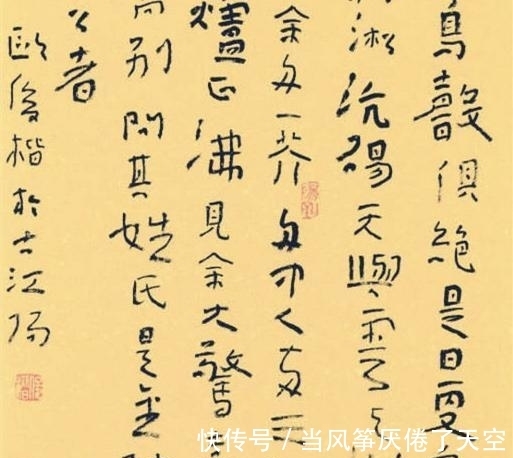 鳥聲俱絕是日更
淞沆碭天與雲與
余舟一芥舟中人兩三
爐正沸見余大驚
別問其姓氏是金
者
歐俊楷於古江陽
快传号 / 当风筝厌倦了天空